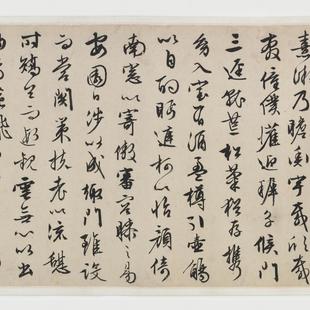 熹微乃瞻衡宇載欣載
奔僮僕歡迎稚子候門
三逕就蕪松菊猶存攜
幼入室有酒盈樽引壺觴
以自酌眄庭柯以怡顏倚
南窓以寄傲審容膝之易
安園日涉以成趣門雖設
而常關策扶老以流憩
時矯首而遐觀雲無心以出